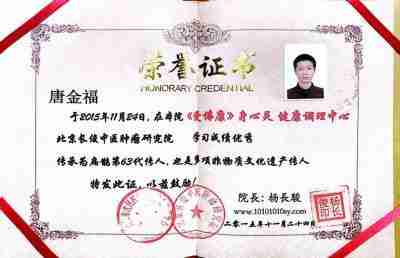 荣誉证书
HONORARY CREDENTIAL
唐金福
于2015年11月24日，在自院《爱博康》身心灵 健康调理中心
北京长俊中医肿瘤研究院 学习成绩优秀
传承为扁鹊第63代传人，也是多项非物质文化遗产传人
特发此证，以兹鼓励！
院长：杨长骏
www.1010101099.com
二〇一五年十一月二十四日